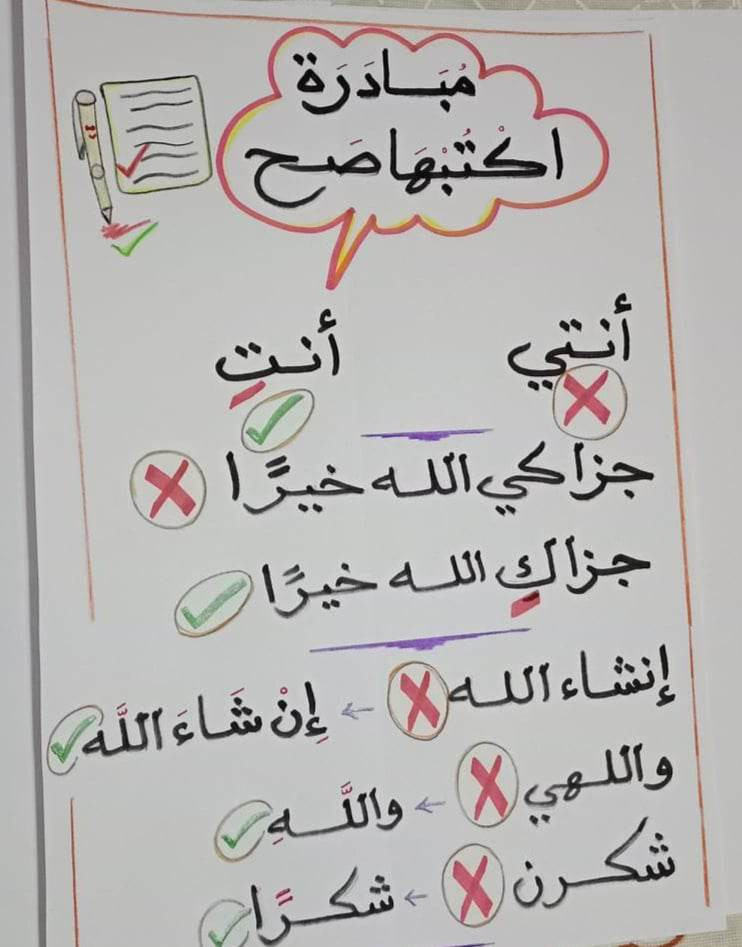 مُبَادَرَة
اكْتُبْهَا صَح
أنتي أنتِ
جزاكي الله خيرًا
جزاكِ الله خيرًا
إنشاء الله ← إِنْ شَاءَ اللَّه
واللهي ← واللَّهِ
شكرن ← شكرًا